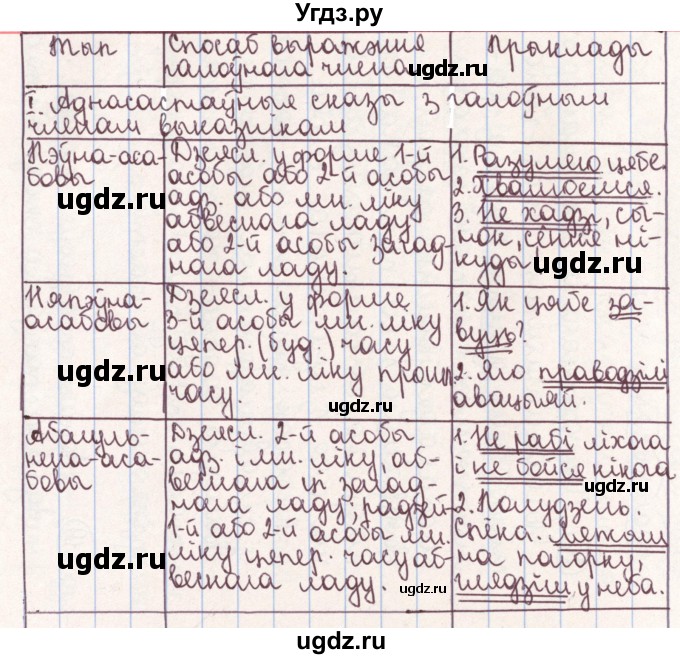 Угдз.ру
Тып
Спосаб выражэння
галоўнага члена
Прыклады
I. Аднасастаўныя сказы з галоўным
членам выказнікам
Пэўна-аса-
бовы
Дзеясл. у форме 1-й
асобы або 2-й асобы
адз. або мн. ліку
абвеснага ладу
або 2-й асобы загад-
нага ладу.
1. Разумею цябе.
2. Хвалюемся.
3. Не хадзі, сы-
нок, сёння ні-
куды
Няпэўна-
асабовы
Дзеясл. у форме
3-й асобы мн. ліку
цепер. (буд.) часу
або мн. ліку прошл.
часу.
1. Як цябе за-
вуць?
2. Яго праводзілі
авацыяй.
Абагуль-
нена-аса-
бовы
Дзеясл. 2-й асобы
адз. і мн. ліку, аб-
веснага ці загад-
нага ладу; радзей
1-й або 2-й асобы мн.
ліку цепер. часу аб-
веснага ладу.
1. Не рабі ліхога
і не бойся нікога
2. Полудзень.
Спёка. Ляжаш
на пагорку,
глядзіш у неба.
ugdz.ru
ugdz.ru
ugdz.ru
ugdz.ru
ugdz.ru
ugdz.ru
ugdz.ru
ugdz.ru
ugdz.ru
ugdz.ru
ugdz.ru
ugdz.ru